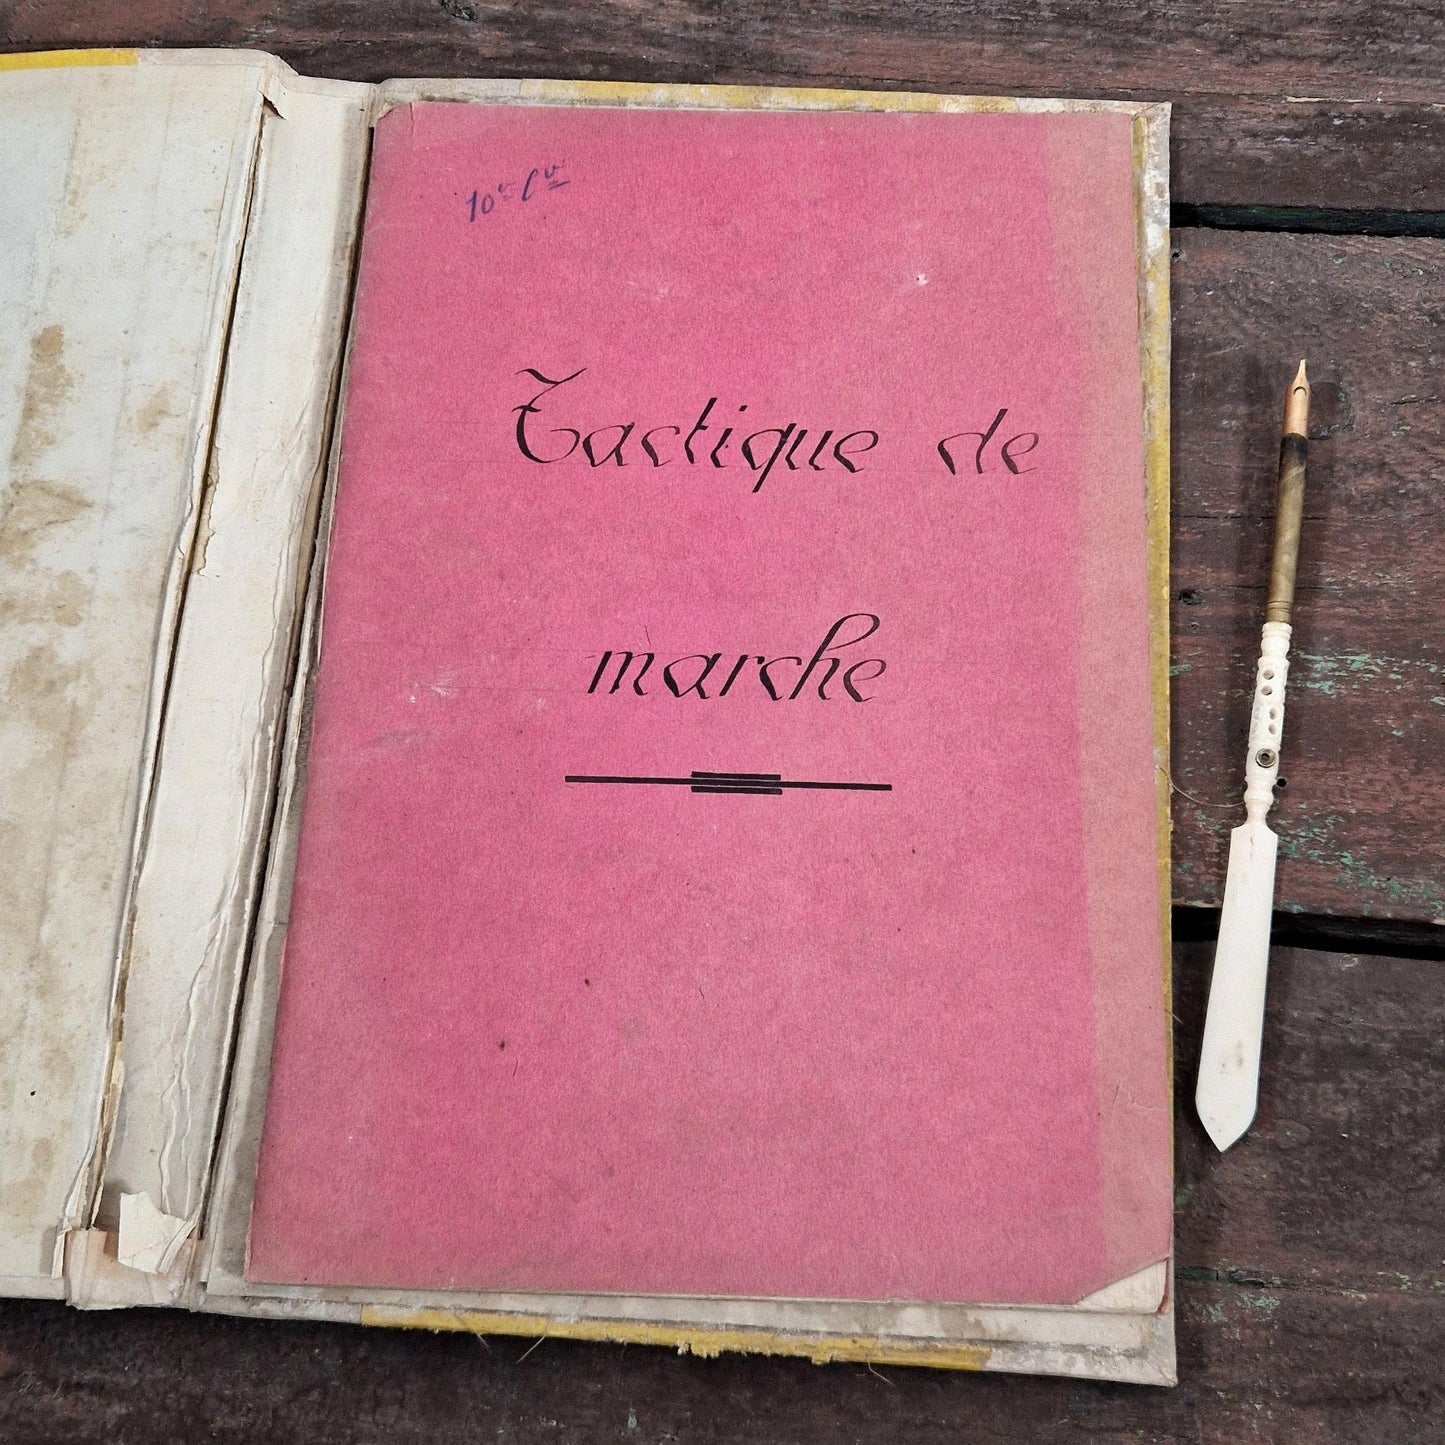 10e Cie
Tactique de
marche